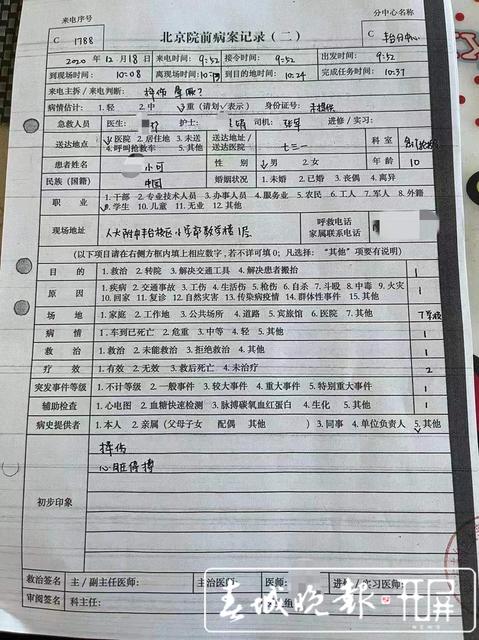 来电序号
分中心名称
北京院前病案记录（二）
C 1788
C 丰台分中心
2020 年 12 月 18 日 来电时间: 9:52 接令时间: 9:52 出发时间: 9:52
到现场时间: 10:08 离现场时间: 到目的地时间: 10:24 完成任务时间: 10:37
来电主诉/来电判断: 摔伤
病情估计: 1. 轻 2. 中 重(请划√表示) 身份证号: 未提供
急救人员 医生: 护士: 司机: 进修/实习:
送达地点 医院 2. 居住地 3. 未送
4. 呼叫抢救车 5. 其他
送达地址/
送达医院 七三一 科室
患者姓名 小可 性别 男 2. 女 年龄 10
民族(国籍) 中国 婚姻状况 1. 未婚 2. 已婚 3. 丧偶 4. 离异
职业 1. 干部 2. 专业技术人员 3. 办事人员 4. 服务业 5. 农民 6. 工人 7. 军人 8. 外籍
学生 10. 儿童 11. 无业 12. 其他
现场地址 人大附中丰台校区小学部教学楼1层
呼救电话
家属联系电话
(以下项目请在右侧方框内填上相应数字,若不详可填 0; 凡选择:“其他”项要有说明)
目的 1. 救治 2. 转院 3. 解决交通工具 4. 解决患者搬抬 1
原因 1. 疾病 2. 交通事故 3. 工伤 4. 生活伤 5. 枪伤 6. 自杀 7. 斗殴 8. 中毒 9. 火灾
10. 回家 11. 复诊 12. 自然灾害 13. 传染病疫情 14. 群体性事件 15. 其他 1
场地 1. 家庭 2. 工作地 3. 公共场所 4. 道路 5. 宾旅馆 6. 医院 7. 其他 7学校
病情 1. 车到已死亡 2. 危重 3. 中等 4. 轻 5. 其他 1
救治 1. 救治 2. 未能救治 3. 拒绝救治 4. 其他 1
疗效 1. 有效 2. 无效 3. 救后死亡 4. 未治疗 2
突发事件等级 1. 不计等级 2. 一般事件 3. 较大事件 4. 重大事件 5. 特别重大事件 1
辅助检查 1. 心电图 2. 血糖快速检测 3. 脉搏碳氧血红蛋白 4. 生化 5. 其他 1
病史提供者 1. 本人 2. 亲属(父母子女 配偶 其他 ) 3. 同事 4. 单位负责人 5. 其他
初步印象
摔伤
心脏停搏
救治签名 主/副主任医师: 主治医师: 医师: 进修/实习医师:
审阅签名 科主任:
春城晚报 开屏